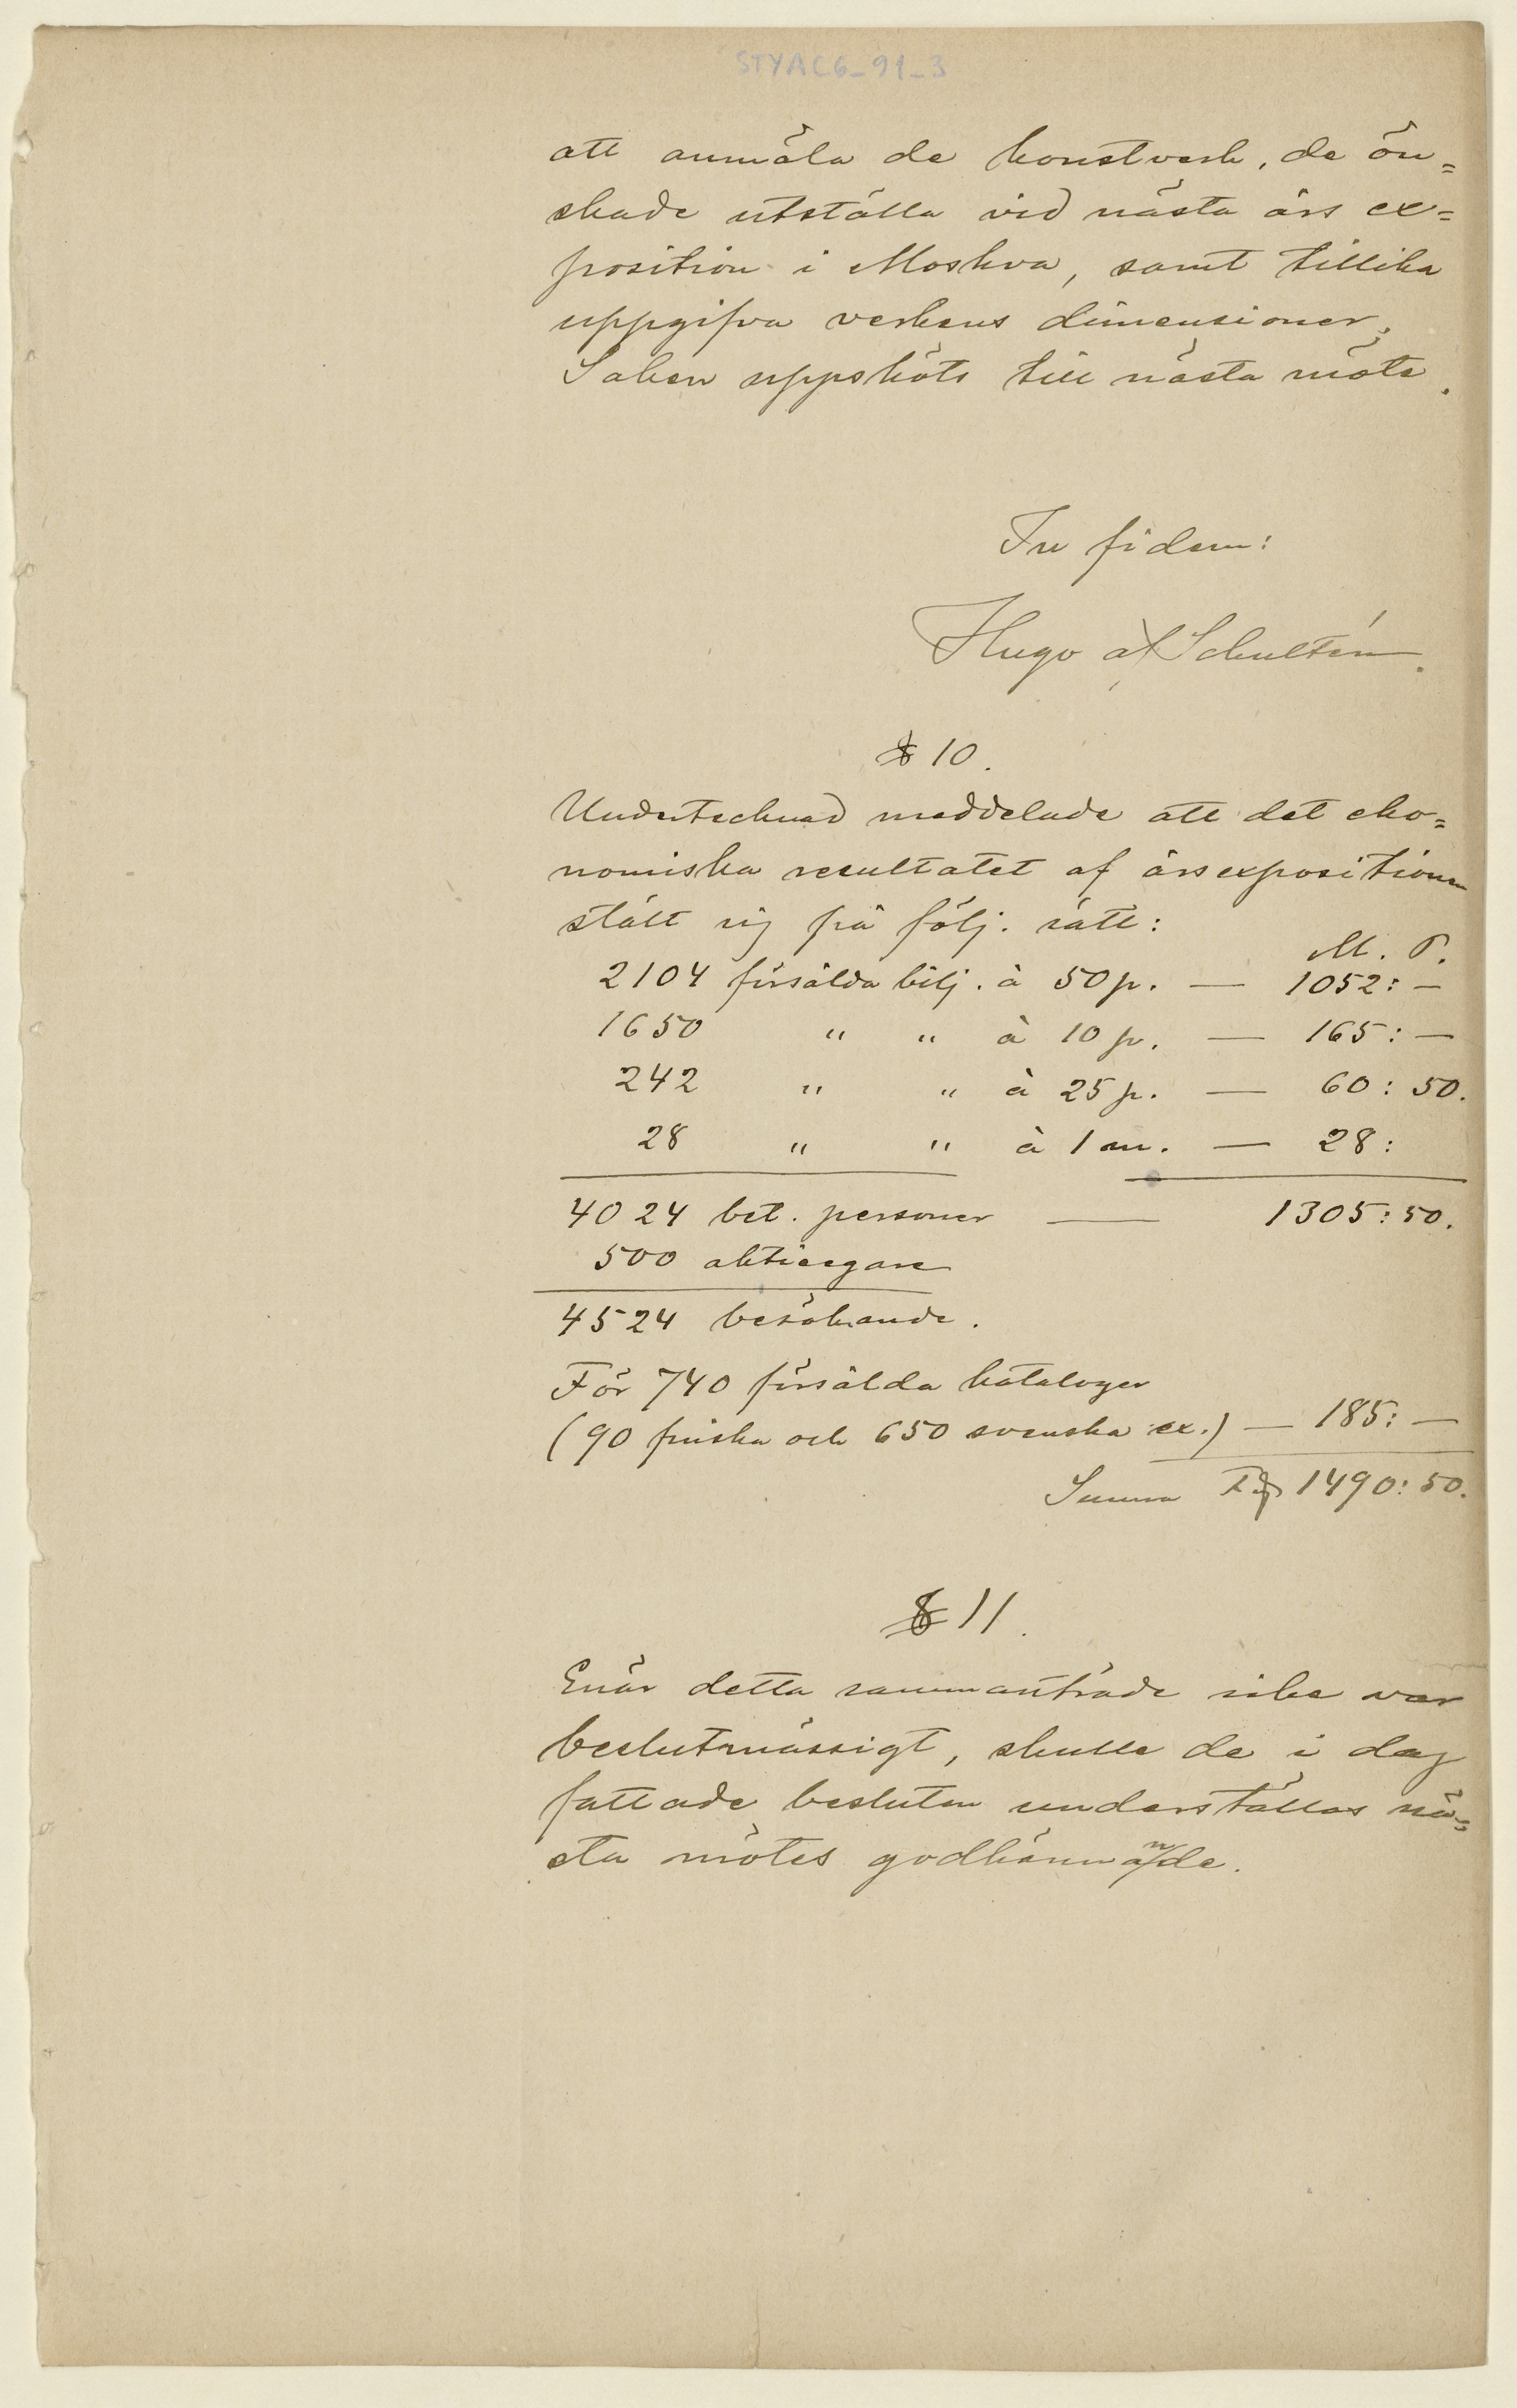 STYAC6_91_3
att anmäla de konstverk, de ön=
skade utställa vid nästa års ex=
position i Moskva, samt tillika
uppgifva verkens dimensioner.
Saken uppsköts till nästa möte.
In fidem:
Hugo af Schultén.
§ 10.
Undertecknad meddelade att det eko=
nomiska resultatet af årsexpositionen
stält sig på följ. sätt:
M. P.
2104 försålda bilj. à 50 p. — 1052: —
1650 " " à 10 p. — 165: —
242 " " à 25 p. — 60: 50.
28 " " à 1 m. — 28:
4024 bet. personer — 1305: 50.
500 aktieegare
4524 besökande.
För 740 försålda kataloger
(90 finska och 650 svenska ex.) — 185: —
Summa 1490: 50.
§ 11.
Enär detta sammanträde icke var
beslutmässigt, skulle de i dag
fattade besluten underställas nä=
sta mötes godkännande.